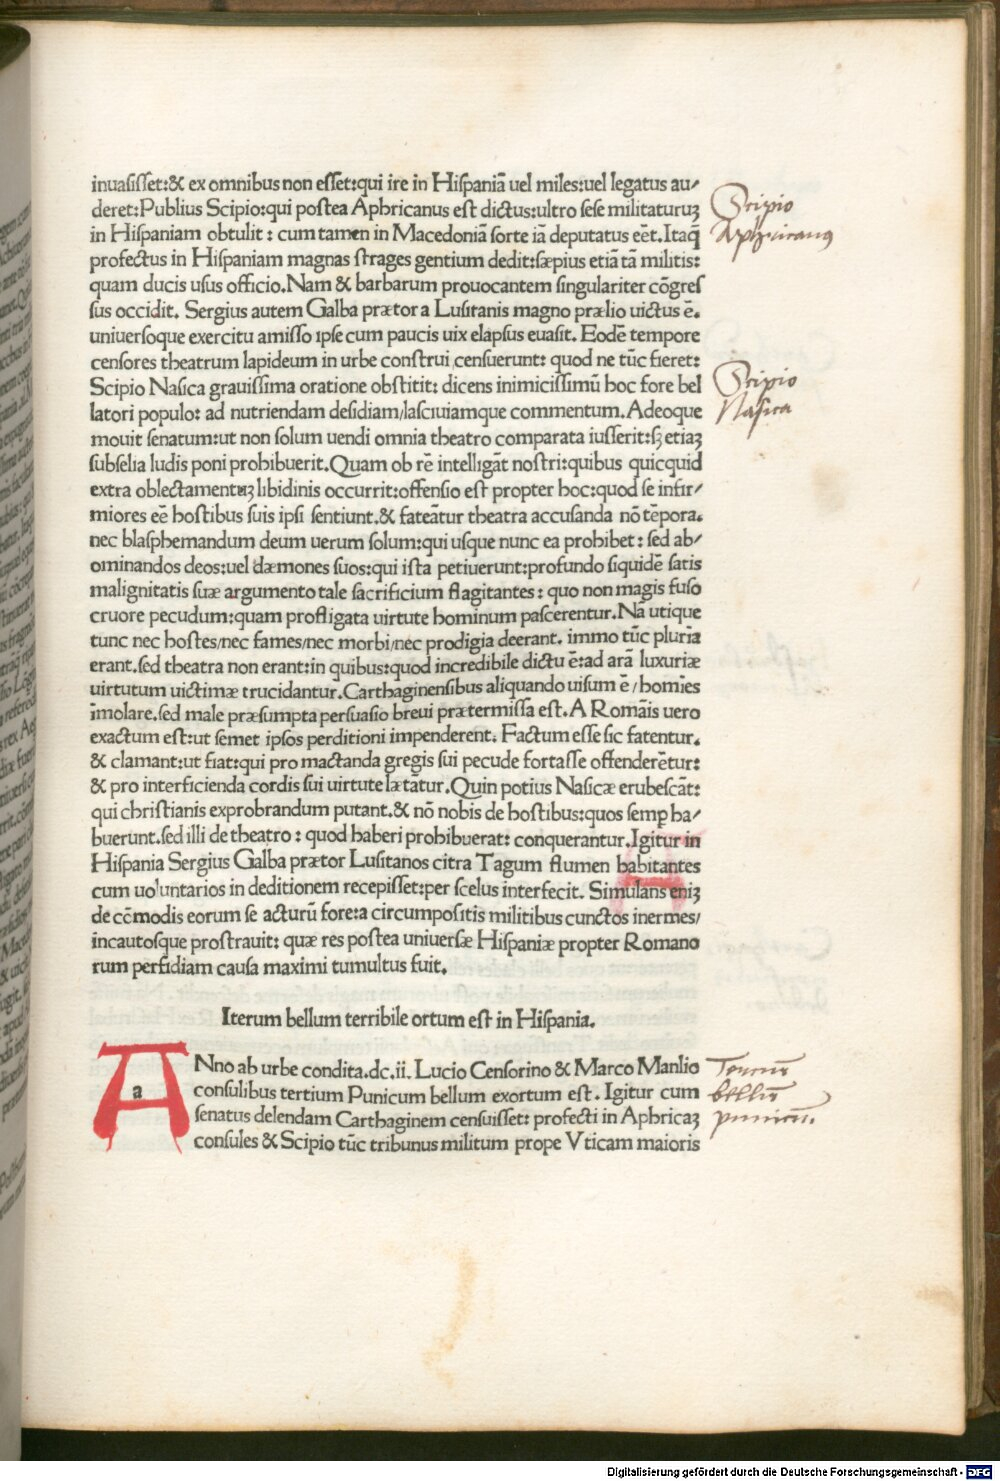 inuasisset:& ex omnibus non esset:qui ire in Hispaniā uel miles:uel legatus au/
deret:Publius Scipio:qui postea Aphricanus est dictus:ultro sese militaturuꝫ
in Hispaniam obtulit : cum tamen in Macedoniā sorte iā deputatus eēt.Itaq̄
profectus in Hispaniam magnas strages gentium dedit:sæpius etiā tā militis:
quam ducis usus officio.Nam & barbarum prouocantem singulariter cōgres
sus occidit. Sergius autem Galba prætor a Lusitanis magno prælio uictus ē.
uniuersoque exercitu amisso ipse cum paucis uix elapsus euasit. Eodē tempore
censores theatrum lapideum in urbe construi censuerunt: quod ne tūc fieret:
Scipio Nasica grauissima oratione obstitit: dicens inimicissimū hoc fore bel
latori populo: ad nutriendam desidiam/lasciuiamque commentum.Adeoque
mouit senatum:ut non solum uendi omnia theatro comparata iusserit:sꝫ etiaꝫ
subselia ludis poni prohibuerit.Quam ob rē intelligāt nostri:quibus quicquid
extra oblectamentuꝫ libidinis occurrit:offensio est propter hoc:quod se infir/
miores eē hostibus suis ipsi sentiunt.& fateātur theatra accusanda nō tēpora.
nec blasphemandum deum uerum solum:qui usque nunc ea prohibet : sed ab/
ominandos deos:uel dæmones suos:qui ista petiuerunt:profundo siquidē satis
malignitatis suæ argumento tale sacrificium flagitantes : quo non magis fuso
cruore pecudum:quam profligata uirtute hominum pascerentur.Nā utique
tunc nec hostes/nec fames/nec morbi/nec prodigia deerant. immo tūc pluria
erant.sed theatra non erant:in quibus:quod incredibile dictu ē:ad arā luxuriæ
uirtutum uictimæ trucidantur.Carthaginensibus aliquando uisum ē / homīes
īmolare.sed male præsumpta persuasio breui prætermissa est.A Romāis uero
exactum est:ut semet ipsos perditioni impenderent. Factum esse sic fatentur.
& clamant:ut fiat:qui pro mactanda gregis sui pecude fortasse offenderētur:
& pro interficienda cordis sui uirtute lætātur.Quin potius Nasicæ erubescāt:
qui christianis exprobrandum putant.& nō nobis de hostibus:quos semꝑ ha/
buerunt.sed illi de theatro : quod haberi prohibuerat: conquerantur.Igitur in
Hispania Sergius Galba prætor Lusitanos citra Tagum flumen habitantes
cum uoluntarios in deditionem recepisset:per scelus interfecit. Simulans eniꝫ
de cōmodis eorum se acturū fore:a circumpositis militibus cunctos inermes/
incautosque prostrauit: quæ res postea uniuersæ Hispaniæ propter Romano
rum perfidiam causa maximi tumultus fuit.
Iterum bellum terribile ortum est in Hispania.
a
ANno ab urbe condita.dc.ii. Lucio Censorino & Marco Manlio
consulibus tertium Punicum bellum exortum est. Igitur cum
senatus delendam Carthaginem censuisset: profecti in Aphricaꝫ
consules & Scipio tūc tribunus militum prope Vticam maioris
Scipio
Aphricanus
Scipio
Nasica
bellū
punicū.
Digitalisierung gefördert durch die Deutsche Forschungsgemeinschaft - DFG